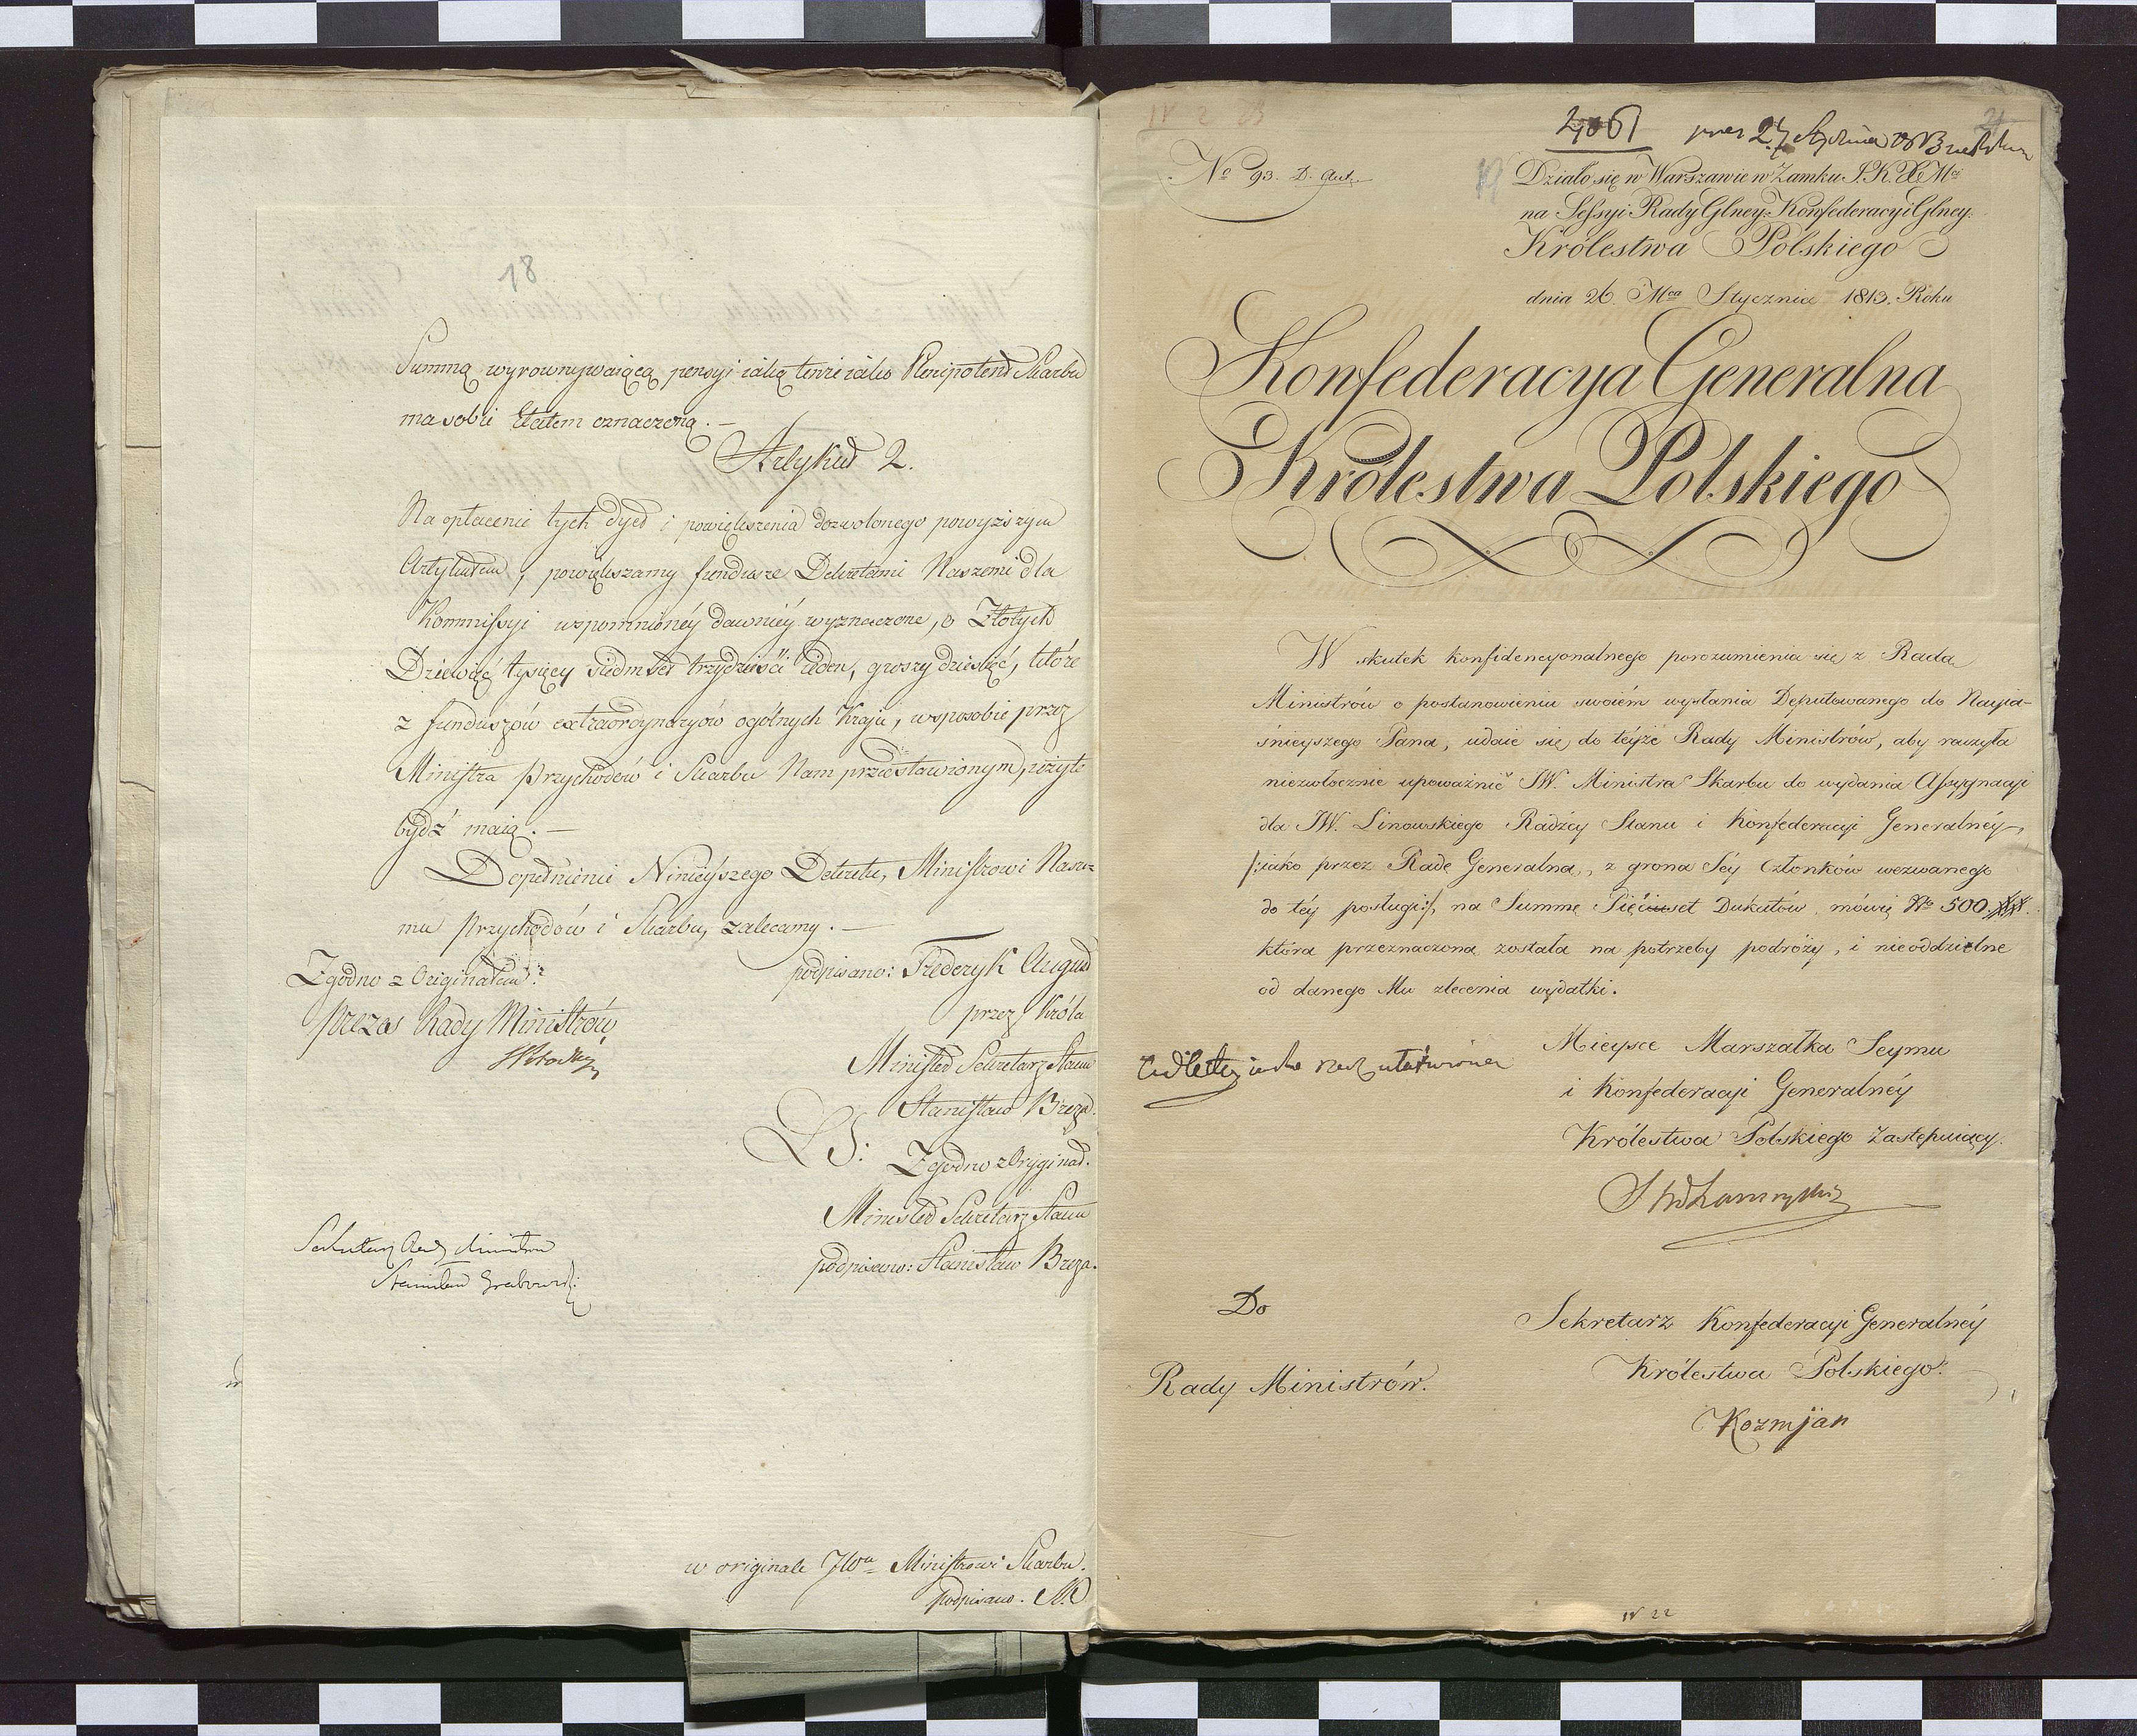 18
Summą wyrownywaiącą pensyi iaką tenże iako Plenipotent Skarbu
ma sobie Etatem oznaczoną. —
Artykuł 2.
Na opłacenie tych dyet i powiększenia dozwolonego powyższym
Artykułem, powiększamy fundusze Dekretami Naszemi dla
Kommissyi wspomnionéy dawniéy wyznaczone, o Złotych
Dziewięć tysięcy siedmset trzydzieści ieden, groszy dziesięć, które
z funduszów extraordynaryów ogólnych Kraju, w sposobie przez
Ministra Przychodów i Skarbu Nam przedstawionym, użyte
bydź maią. —
Dopełnienie Ninieyszego Dekretu, Ministrowi Nasze-
mu Przychodów i Skarbu, zalecamy. —
Zgodno z Originałem:
podpisano: Frederyk August
Prezes Rady Ministrów
przez Króla
Minister Sekretarz Stanu
Stanisław Breza.
LS: Zgodno z Oryginał.
Minister Sekretarz Stanu
podpisano: Stanisław Breza.
Sekretarz Rady Ministrów
Stanisław Grabowski
w originale JWu Ministrowi Skarbu.
podpisano.
21
No 93. D. Aut.
Działo się w Warszawie w Zamku J. K. X Mci
na Sessyi Rady Glney: Konfederacyi Glney:
Królestwa Polskiego
dnia 26. Mca Stycznia 1813. Roku
Konfederacya Generalna
Królestwa Polskiego
W skutek konfidencyonalnego porozumienia się z Radą
Ministrów o postanowieniu swoiém wysłania Deputowanego do Nayia-
śnieyszego Pana, udaie się do téyże Rady Ministrów, aby raczyła
niezwłocznie upoważnić JW. Ministra Skarbu do wydania Assygnacyi
dla JW. Linowskiego Radźcy Stanu i Konfederacyi Generalnéy,
/:iako przez Radę Generalną, z grona Jéy Członków wezwanego
do téy posługi:/, na Summę Pięćset Dukatów, mówię No 500.
która przeznaczona została na potrzeby podróży, i nieoddzielne
od danego Mu zlecenia wydatki.
Mieysce Marszałka Seymu
i Konfederacyi Generalnéy
Królestwa Polskiego Zastępuiący.
Do
Rady Ministrów.
Sekretarz Konfederacyi Generalnéy
Królestwa Polskiego:
Kozmjan
N 22